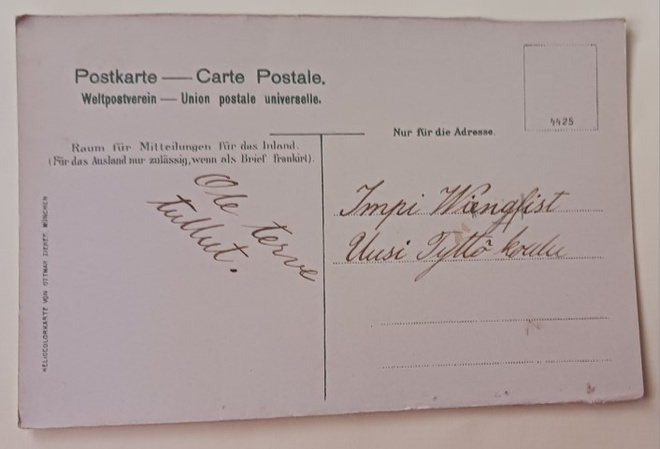 Postkarte — Carte Postale.
Weltpostverein — Union postale universelle.
4425
Nur für die Adresse.
Raum für Mitteilungen für das Inland.
(Für das Ausland nur zulässig, wenn als Brief frankirt).
Ole terve
tullut.
Impi Wänglist
Uusi Tyttö koulu
HELIOCOLORKARTE VON OTTMAR ZIEHER, MÜNCHEN